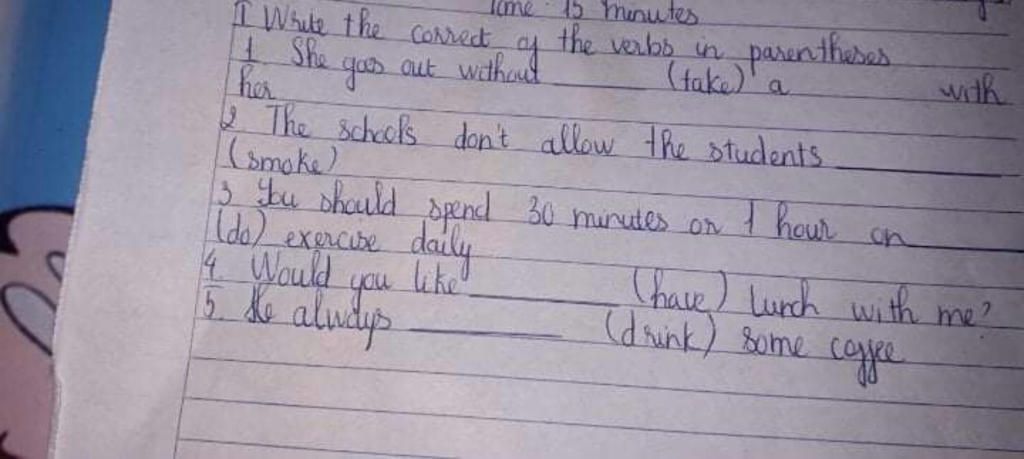 Time 15 minutes
I Write the correct of the verbs in parentheses
1 She goes out without ______ (take) a with
her
2 The schools don't allow the students ______
(smoke)
3 You should spend 30 minutes or 1 hour on ______
(do) exercise daily
4. Would you like ______ (have) lunch with me?
5. He always ______ (drink) some coffee